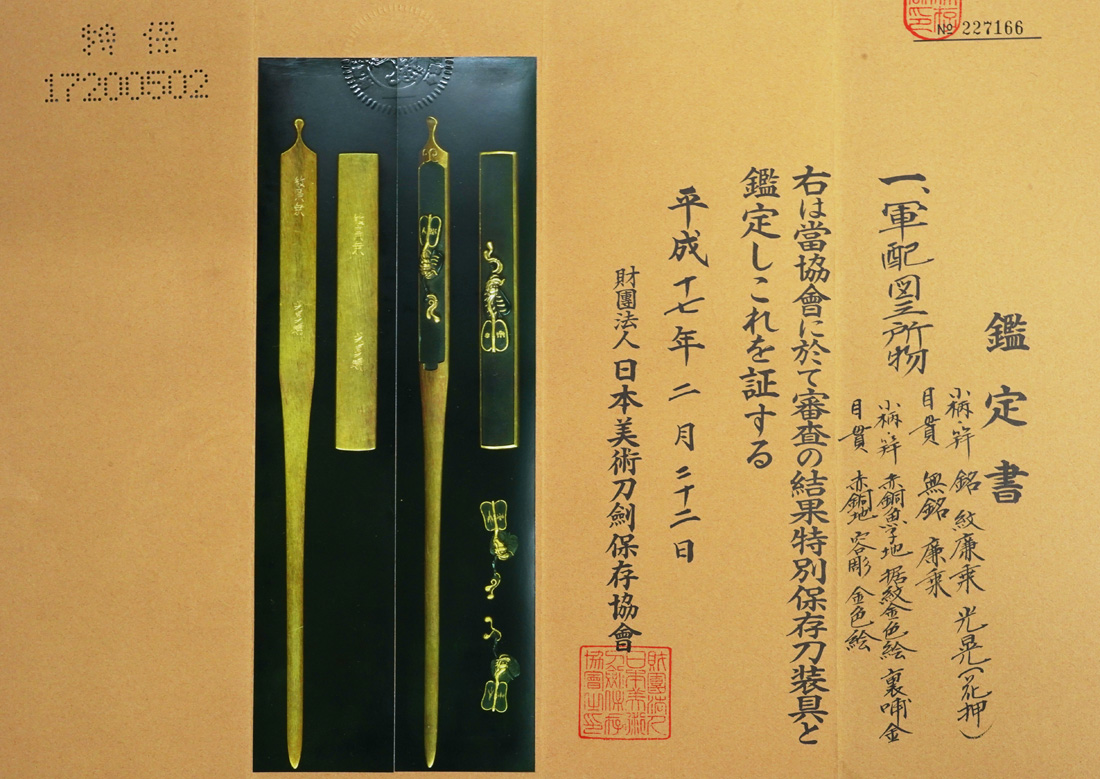 No 227166
鑑定書
一、軍配図三所物
小柄・笄 銘 紋廉乗 光晃(花押)
目貫 無銘 廉乗
小柄・笄 赤銅魚子地 据紋金色絵 裏哺金
目貫 赤銅地 容彫 金色絵
右は當協會に於て審査の結果特別保存刀装具と
鑑定しこれを証する
平成十七年二月二十二日
財團法人 日本美術刀劍保存協會
財團法人日本美術刀劍保存協會之印
特保
17200502